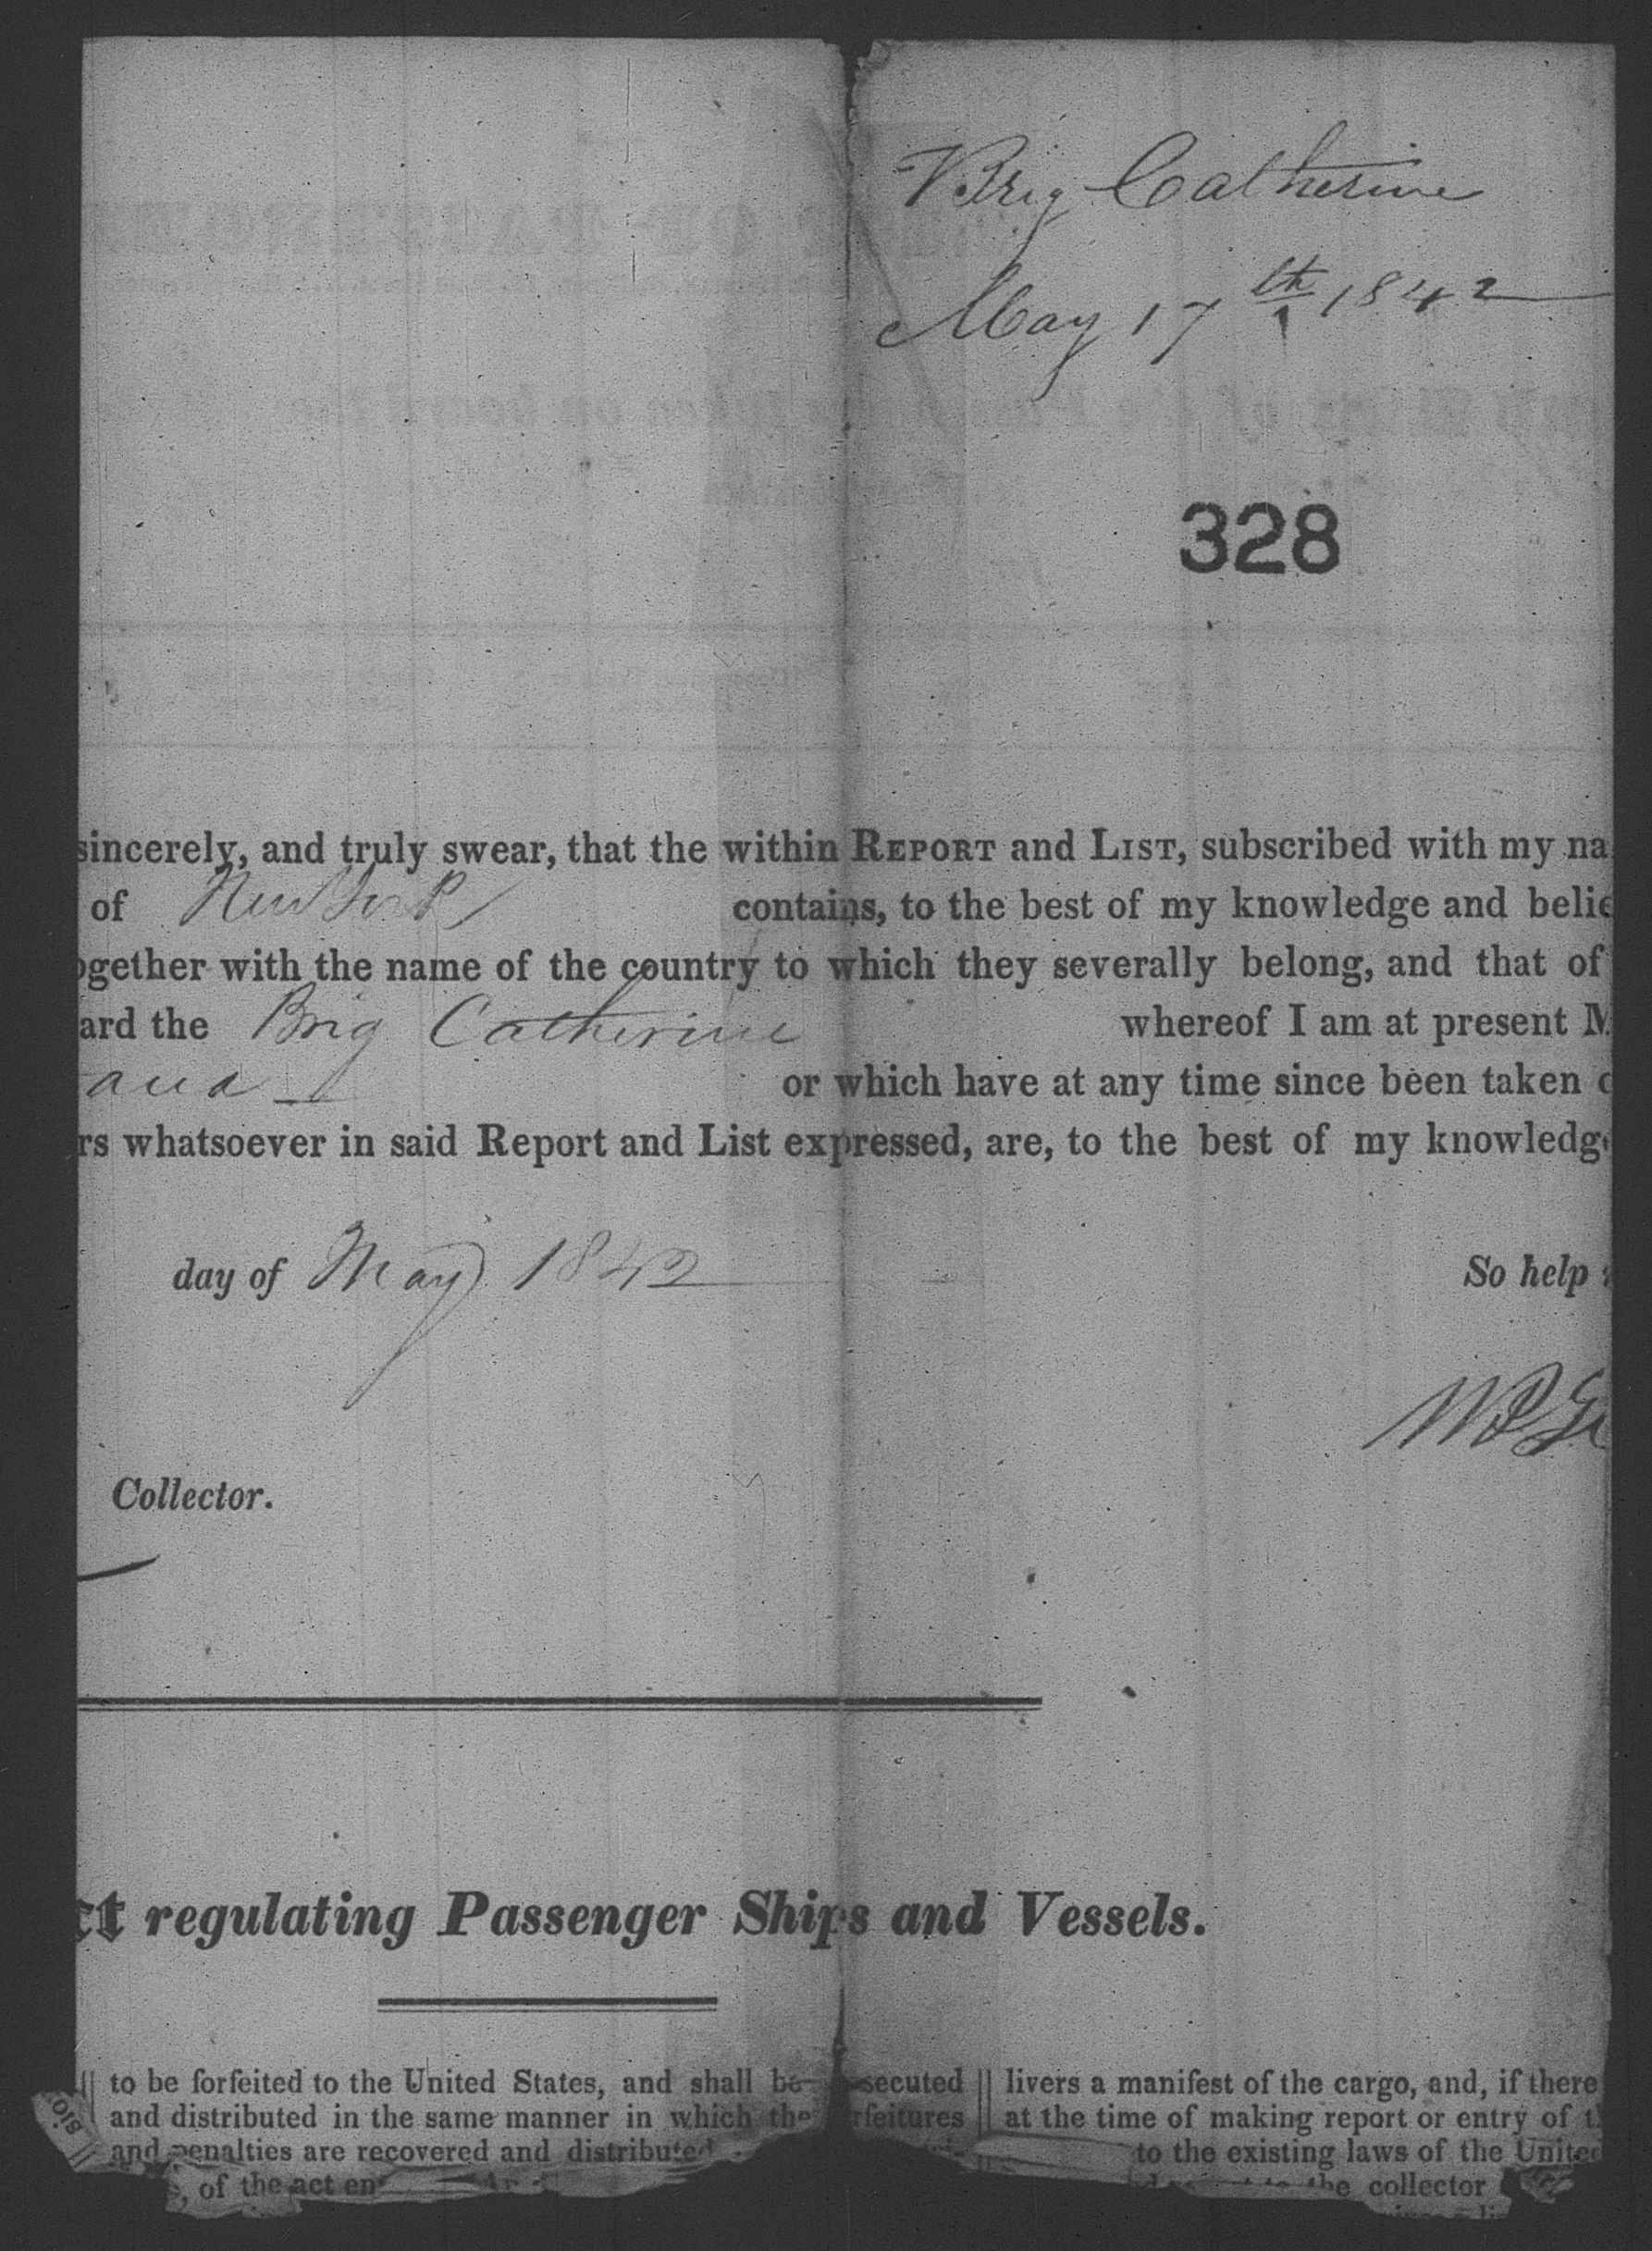 Brig Catherine
May 17th 1842
328
sincerely, and truly swear, that the within REPORT and LIST, subscribed with my na
of New York contains, to the best of my knowledge and belie
ogether with the name of the country to which they severally belong, and that of
ard the Brig Catherine whereof I am at present M
ana or which have at any time since been taken o
rs whatsoever in said Report and List expressed, are, to the best of my knowledge
day of May 1842 So help
Collector.
ct regulating Passenger Ships and Vessels.
to be forfeited to the United States, and shall be secuted
and distributed in the same manner in which the rfeitures
and penalties are recovered and distributed
of the act en
livers a manifest of the cargo, and, if there
at the time of making report or entry of t
to the existing laws of the United
the collector